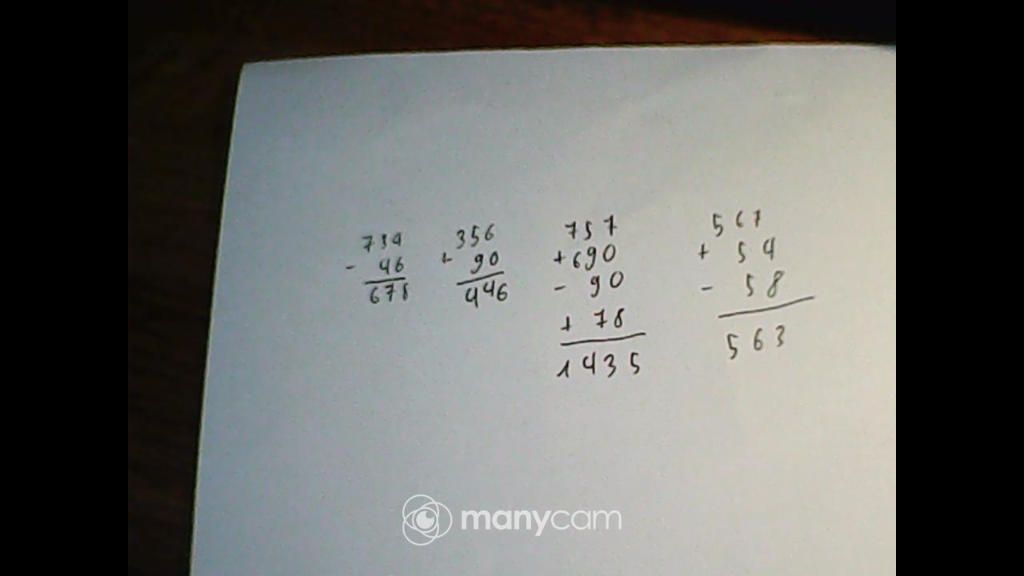 734
- 46
678
356
+ 90
446
757
+690
- 90
+ 78
1435
567
+ 54
- 58
563
manycam